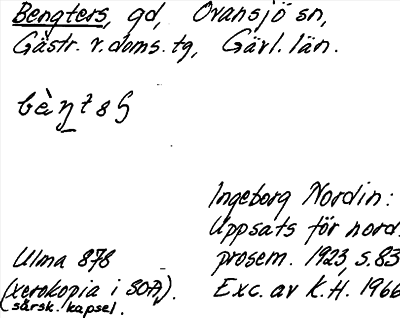 Bengters, gd, Ovansjö sn,
Gästr. v. doms. tg, Gävl. län.
Ingeborg Nordin:
Uppsats för nord.
Ulma 878 prosem. 1923, s. 83
(xerokopia i SOA, Exc. av K.H. 1966
särsk. kapsel).